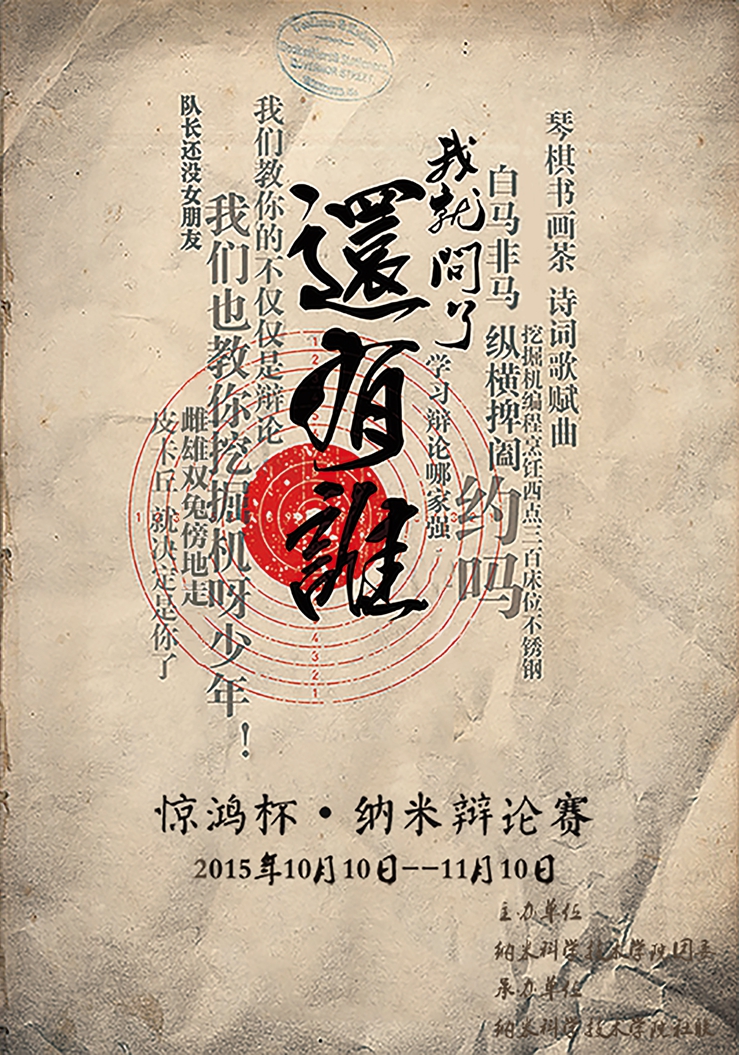 琴棋书画茶 诗词歌赋曲
挖掘机编程烹饪西点三百床位不锈钢
白马非马 纵横捭阖
约吗
我就问了
学习辩论哪家强
還有誰
我们教你的不仅仅是辩论
我们也教你挖掘机呀少年！
队长还没女朋友
雌雄双兔傍地走
皮卡丘 就决定是你了
1
2
3
4
3
2
1
惊鸿杯·纳米辩论赛
2015年10月10日--11月10日
主办单位
纳米科学技术学院团委
承办单位
纳米科学技术学院社联